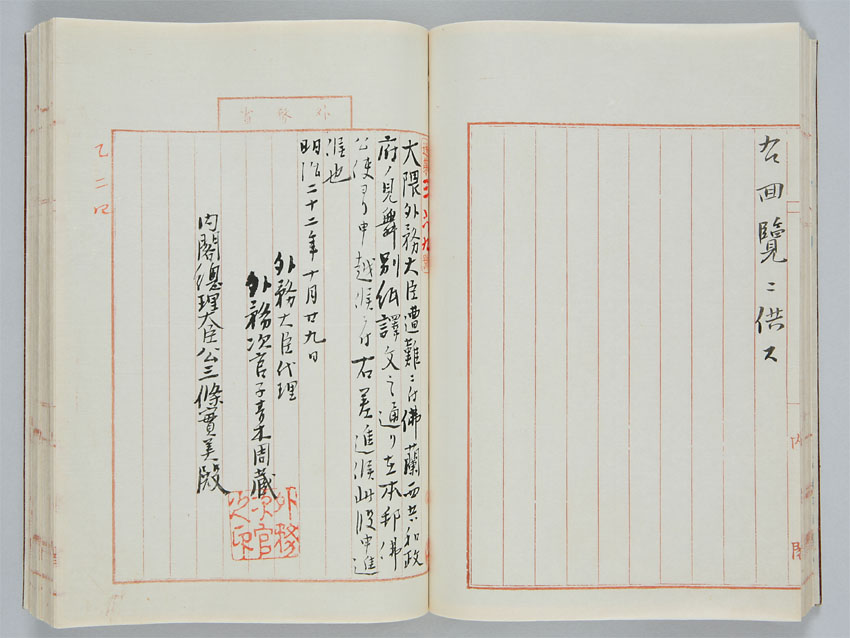 右回覧ニ供ス
内閣
外務省
大隈外務大臣遭難ニ付佛蘭西共和政
府ノ見舞別紙譯文之通リ在本邦佛
公使ヨリ申越候ニ付右差進候此段申進
候也
明治二十二年十月廿九日
外務大臣代理
外務次官子青木周蔵
外務次官之印
内閣總理大臣公三條實美殿